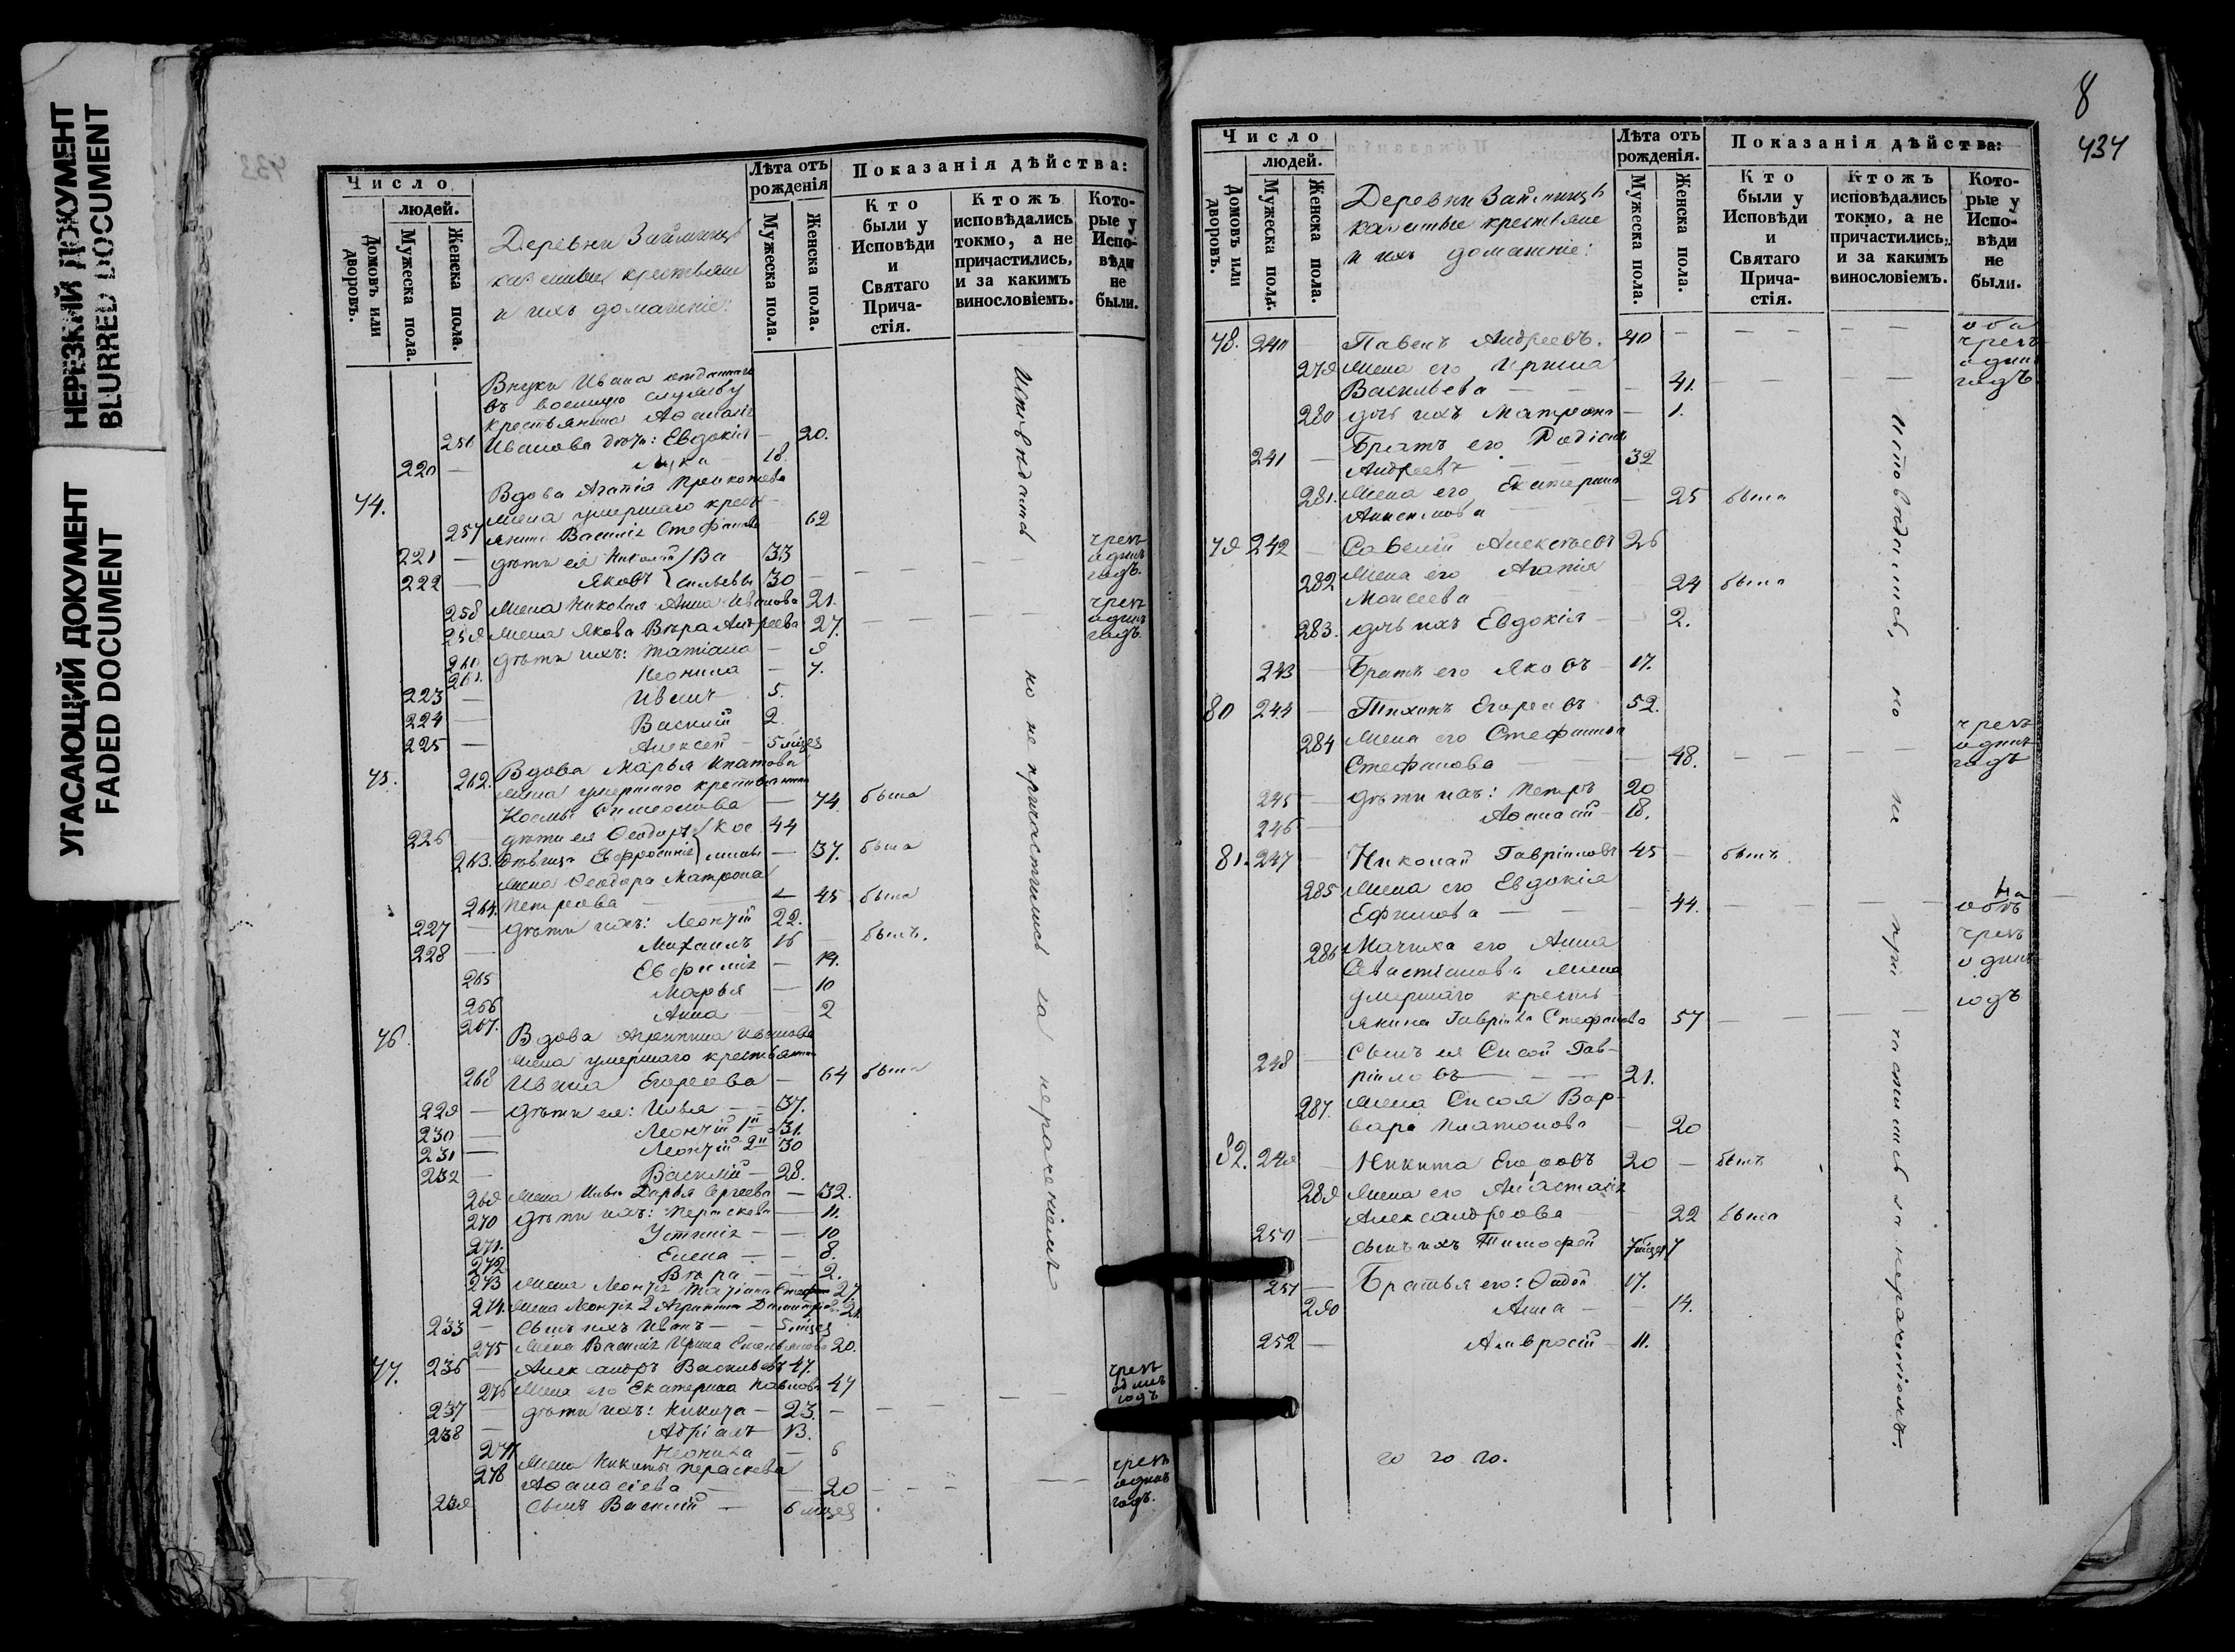 НЕРЕЗКИЙ ДОКУМЕНТ
BLURRED DOCUMENT
УГАСАЮЩИЙ ДОКУМЕНТ
FADED DOCUMENT
Число
людей.
Домовъ или дворовъ.
Мужеска пола.
Женска пола.
Деревни
крестьяне
и ихъ домашніе:
Лѣта отъ рожденія
Мужеска пола.
Женска пола.
Показанія дѣйства:
Кто были у Исповѣди и Святаго Прича-стія.
Ктожъ исповѣдались токмо, а не причастились, и за какимъ винословіемъ.
Кото-рые у Испо-вѣди не были.
Исповѣдались но не причастились за нераченіемъ
Внуки Ивана
въ военную службу
крестьянина
256 Иванова дѣти: Евдокія — 20.
220 — Лука — 18.
74. Вдова Агапія Прокопьева
жена умершаго кресть-
257 янина Василія Стефанова 62
221 — дѣти ея Николай Ва 33 чрезъ
222 — Яковъ сильевы 30 одинъ годъ.
258 жена Николая Анна Иванова 21. чрезъ
259 жена Якова Вѣра Андреева 27. одинъ годъ
260 дѣти ихъ: Татіана — 9
261. Неонила — 7.
223 — Иванъ 5.
224 — Василій 2.
225 — Алексѣй — 5 мѣсец
75. 262. Вдова Марья Ипатова
жена умершаго крестьянина
Космы Симеонова — 74 была
226 — дѣти ея Ѳеодоръ Кос 44
263. дѣвица Евфросинія мины — 37. была
жена Ѳеодора Матрона
264. Петрова — 45 была
227 — дѣти ихъ: Леонтій 22.
228 — Михаилъ 16 — былъ.
265 Евфимія — 14.
266 Марья — 10
267. Анна 2
76. Вдова Агрипина Иванова
жена умершаго крестьянина
268 Ивана Егорова — 64 была
229 — дѣти ея: Илья — 37.
230 — Леонтій 1й 31.
231 — Леонтій 2й 30
232 — Василій — 28.
269 жена Ильи Дарья Сергеева — 32.
270 дѣти ихъ: Параскева — 11.
271. Устинія — 10
272 Елена — 8.
273 Вѣра — 2.
жена Леонтія Татіана 27
274. жена Леонтія 2 Агрипина 21
233 — сынъ ихъ Иванъ — 5 мѣсец
275 жена Василія Ирина Емельянова 20.
77. 236 — Александръ Васильевъ 47.
276 жена его Екатерина Павлова 47 чрезъ одинъ годъ
237 — дѣти ихъ: Никита — 23. —
238 — Адріанъ 13.
277 Неонила — 6
278 жена Никиты Параскева чрезъ
Аѳанасіева — 20 — одинъ
239 сынъ Василій — 6 мѣсец годъ.
8
434
Число
людей.
Домовъ или дворовъ.
Мужеска пола.
Женска пола.
Деревни
крестьяне
и ихъ домашніе:
Лѣта отъ рожденія.
Мужеска пола.
Женска пола.
Показанія дѣйства:
Кто были у Исповѣди и Святаго Прича-стія.
Ктожъ исповѣдались токмо, а не причастились, и за какимъ винословіемъ.
Кото-рые у Испо-вѣди не были.
Исповѣдались, но не причастились за нераченіемъ.
78. 240 — Павелъ Андреевъ. 40 оба чрезъ
279 жена его Ирина одинъ
Васильева — 41. годъ.
280 дочь ихъ Матрона — 1.
Братъ его Родіонъ
241 — Андреевъ 32
281. жена его, Екатерина
— 25 была
79 242 — Савелій Алексѣевъ 26
282 жена его Агапія
Моисеева 24 была
283. дочь ихъ Евдокія — 2.
243 — Братъ его Яковъ 17.
80 244 — Тихонъ Егоровъ 52.
284 жена его чрезъ одинъ
Стефанова — 48. годъ
245 — дѣти ихъ: Петръ 20
246 — Аѳанасій 18.
81. 247 — Николай Гавріиловъ 45 — былъ
285 жена его Евдокія
Ефимова — 44.
286 Мачиха его Анна чрезъ
Севастіанова жена одинъ
умершаго кресть- годъ
янина Гавріила Стефанова 57
248 — Сынъ ея Сисой Гав-
ріиловъ — 21.
287. жена Сисоя Вар-
вара Платонова — 20
82. 249 — Никита Егоровъ 20 — былъ
289 жена его Анастасія
Александрова 22 была
250 — сынъ ихъ Тимоѳей 7 мѣсец
251 — Братья его: 17.
290 Анна — 14.
252 — Амвросій 11.